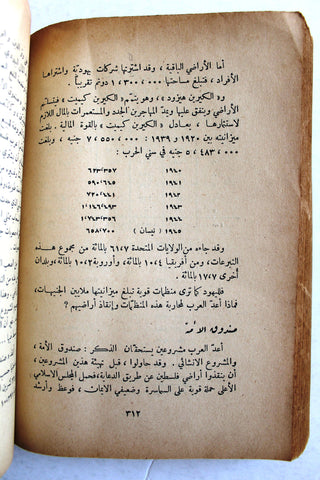 أما الأراضي الباقية ، وقد اشترتها شركات يهودية واشتراها
الأفراد ، فتبلغ مساحتها ١٬٣٠٠٬٠٠٠ دونم تقريباً .
و« الكيرين هيزود » ، وهو يتمّم « الكيرين كيميت » فيتسلم
الأراضي وينفق عليها ويمدّ المهاجرين الجدد والمستعمرات بالمال اللازم
لاستثمارها ، يعادل « الكيرين كيميت » بالقوة المالية . بلغت
ميزانيته بين ١٩٢٠ و ١٩٣٩ : ٧٬٥٥٠٬٠٠٠ جنيه ، وبلغت
٥٬٤٨٣٬٠٠٠ جنيه في سني الحرب :
١٩٤٠ ٦٢٣٬٣٥٧
١٩٤١ ٥٩٠٬٦٤٥
١٩٤٢ ٧٣٠٬٤٤١
١٩٤٣ ١٬٠٨٦٬٤٩٣
١٩٤٤ ١٬٠٧٤٣٬٣٥٦
١٩٤٥ ( نيسان ) ٦٥٨٬٧٠٠
وقد جاءه من الولايات المتحدة ٦١٫٧ بالمائة من مجموع هذه
التبرعات ، ومن أفريقيا ١٠٫٤ بالمائة ، وأوروبة ١٠٫٢ بالمائة ، وبلدان
أخرى ١٧٫٧ بالمائة .
فلليهود كما ترى منظمات قوية تبلغ ميزانيتها ملايين الجنيهات ،
فماذا أعدّ العرب لمحاربة هذه المنظمات وإنقاذ أراضيهم ؟
صندوق الأمة
أعدّ العرب مشروعين يستحقان الذكر : صندوق الأمة ،
والمشروع الانشائي . وقد حاولوا ، قبل تهيئة هذين المشروعين ،
أن ينقذوا أراضي فلسطين عن طريق الدعاية ، فحمل المجلس الاسلامي
الأعلى حملة قوية على السماسرة وضعيفي الايمان ، فوعظ وأرشد
٣١٢